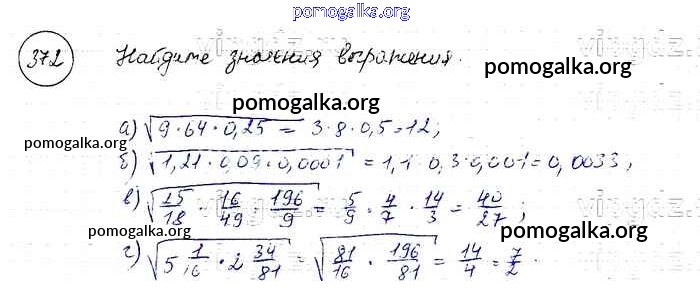 pomogalka.org
372 Найдите значения выражения.
pomogalka.org
pomogalka.org
pomogalka.org
а) √(9·64·0,25) = 3·8·0,5=12;
б) √(1,21·0,09·0,0001) = 1,1·0,3·0,001=0,0033;
в) √(25/18 · 16/49 · 196/9) = 5/9 · 4/7 · 14/3 = 40/27;
pomogalka.org
pomogalka.org
г) √(5 1/16 · 2 34/81) = √(81/16 · 196/81) = 14/4 = 7/2.